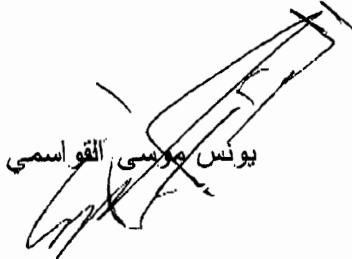 يونس موسى القواسمي